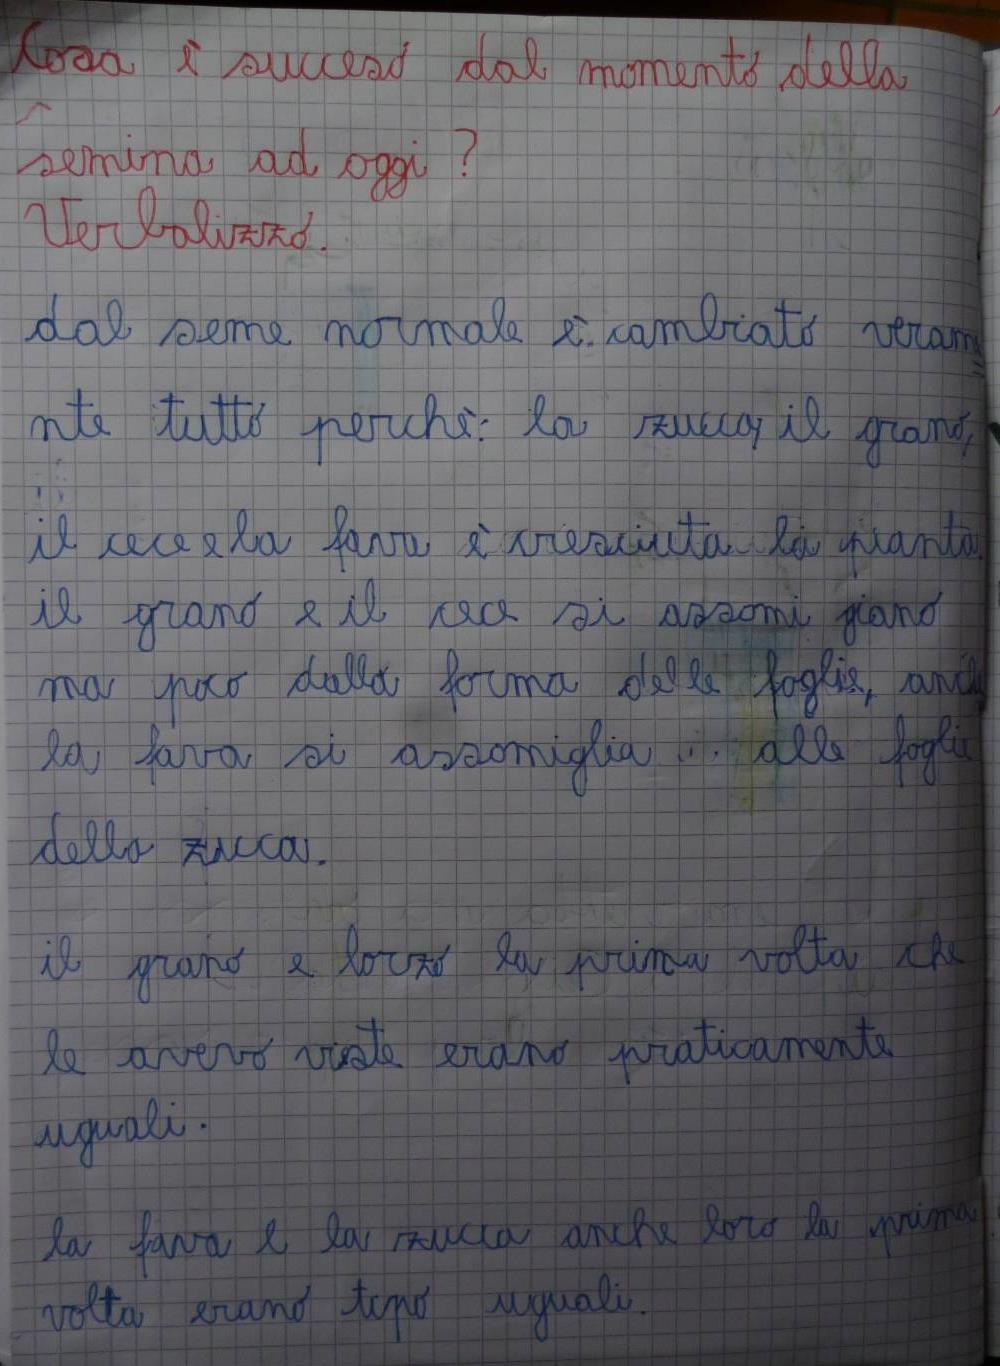 Cosa è successo dal momento della
semina ad oggi?
Verbalizzo.
dal seme normale è cambiato verame
nte tutto perchè: la zucca, il grano,
il cece e la fava è cresciuta la pianta.
il grano e il cece si assomi giano
ma poco dalla forma delle foglie, anche
la fava si assomiglia alle foglie
della zucca.
il grano e lorzo la prima volta che
le avevo viste erano praticamente
uguali.
la fava e la zucca anche loro la prima
volta erano tipo uguali.